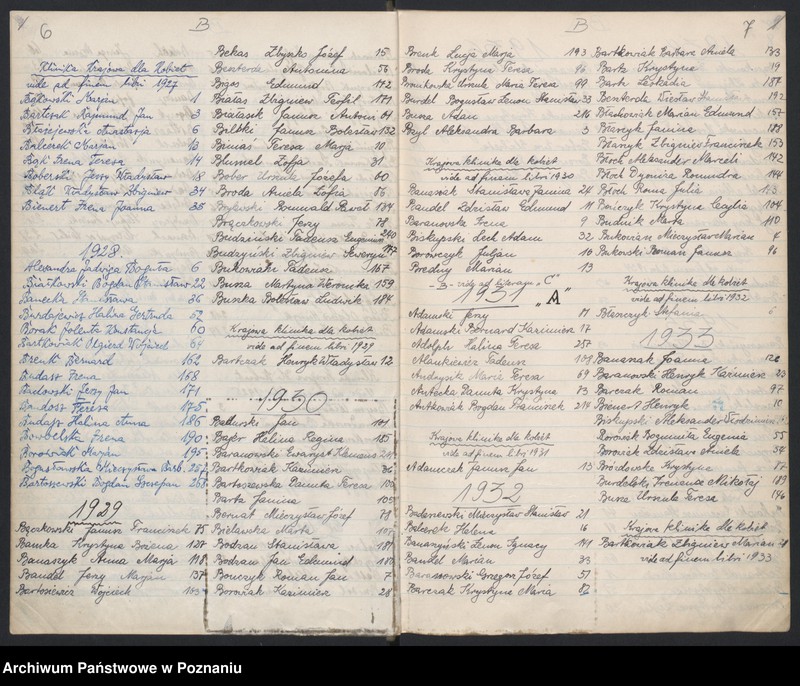 6
B
Klinika Krajowa dla Kobiet
vide ad finem libri 1927
Bąkowski Marjan 1
Bartczak Rajmund Jan 3
Błaszejewska Anastazja 6
Balcerek Marjan 13
Bąk Irena Teresa 14
Boberski Jerzy Władysław 18
Władysław Zbigniew 34
Bienert Irena Joanna 35
1928.
Alexandra Jadwiga Boguta 6
Białkowski Bogdan Stanisław 22
36
Burdajewicz Halina Gertruda 52
Borak Jolenta Konstancja 60
Bartkowiak Olgierd Wojciech 64
Bernard 162
Budasz Irena 168
Budowski Jerzy Jan 171
Teresa 175
Budasz Halina Anna 186
Irena 190
Borowiak Marjan 195
Bogusławska Mieczysława Barb. 257
Bartoszewski Bogdan Szczepan 268
1929
Bączkowski Janusz Franciszek 75
Bamka Krystyna Bożena 127
Banaszyk Anna Marja 118
Bandel Jerzy Marjan 137
Bartosiewicz Wojciech 163
Bekas Zbyszko Józef 15
Antonina 56
Edmund 172
Białas Zbigniew Teofil 171
Bralasek Janusz Antoni 64
Bilski Janusz Bolesław 132
Binaś Teresa Marja 10
Blumel Zofja 31
Bober Urszula Józefa 60
Broda Aniela Zofia 86
Romuald Paweł 184
Brączkowski Jerzy 78
Budziński Tadeusz Eugeniusz 240
Budzyński Zbigniew Seweryn 197
Bukowski Tadeusz 167
Busza Martyna Weronika 159
Buszka Bolesław Ludwik 184
Krajowa klinika dla kobiet
vide ad finem libri 1929
Bartczak Henryk Władysław 12
1930
Jan 101
Bajer Halina Regina 185
Baranowski Ewaryst Klemens
Bartkowiak Kazimierz 36
Bartoszewska Danuta Teresa 100
Barta Janina 105
Bernat Mieczysław Józef 78
Bielawska Marta 107
Bodzan Stanisława 187
Bodzan Jan Edmund 188
Bonczyk Roman Jan 7
Borowiak Kazimierz 28
B
7
Brenk Lucja Marja 193
Broda Krystyna Teresa 96
Urszula Maria Teresa 99
Burdel Bogusław Zenon Stanisław 33
Busza Adam 216
Bzyl Aleksandra Barbara 3
Krajowa klinika dla kobiet
vide ad finem libri 1930
Banaszak Stanisława Janina 24
Bandel Zdzisław Edmund 14
Baranowska Irena 9
Biskupski Lech Adam 32
Borowczyk Julian 10
Bredny Marian 13
B - vide ad literam "C"
1931 „A"
Adamski Jerzy 71
Adamski Bernard Kazimierz 17
Adolph Halina Teresa 257
Adamkiewicz Tadeusz 109
Andrysiak Maria Teresa 69
Antecka Danuta Krystyna 73
Antkowiak Bogdan Franciszek 214
Krajowa klinika dla kobiet
vide ad finem libri 1931
Adamczak Janusz Jan 15
1932
Badaszewski Mieczysław Stanisław 21
Balcerek Helena 16
Banaszyński Zenon Ignacy 141
Bandel Marian 33
Baraszowski Grzegorz Józef 57
Barczak Krystyna Maria 62
Bartkowiak Barbara Aniela 133
Bartz Krystyna 19
Bartz Leokadia 187
Benkerda Wiesław 192
Błachowiak Marian Edmund 157
Błaszyk Janina 188
Błaszyk Zbigniew Franciszek 153
Błoch Aleksander Marceli 142
Błoch Dyonizy Romuald 144
Błoch Roma Julia 123
Bończyk Krystyna Cecylja 104
Budnik Marta 110
Bukowian Mieczysław Marian 7
Bukowski Roman Janusz 96
Krajowa klinika dla kobiet
vide ad finem libri 1932
Błaszczyk Stefania 5
1933
Banaszak Joanna 122
Baranowski Henryk Kazimierz 23
Barczak Roman 97
Bienert Henryk 10
Biskupski Aleksander Włodzimierz
Borowiak Bogumiła Eugenia 55
Borowiak Zdzisława Aniela 34
Bródowska Krystyna 87
Burdelski Ireneusz Mikołaj 189
Busza Urszula Teresa 146
Krajowa klinika dla kobiet
Bartkowiak Zbigniew Marian
vide ad finem libri 1933
Archiwum Państwowe w Poznaniu